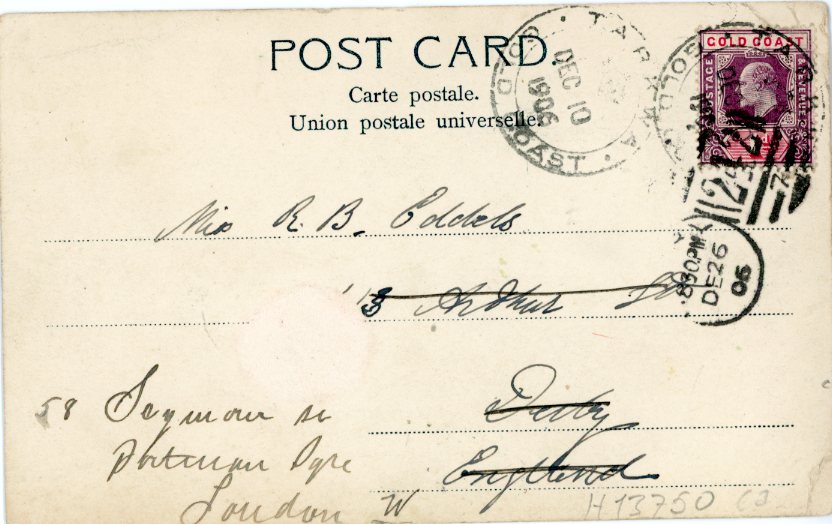 POST CARD.
Carte postale.
Union postale universelle.
TARKWA
DEC 10
1906
GOLD COAST
GOLD COAST
POSTAGE & REVENUE
8 30 PM
DE 26
06
Miss R. B. Eddels
13 Arthur St
Derby
England
58 Seymour St
Portman Sqre
London W
H13750